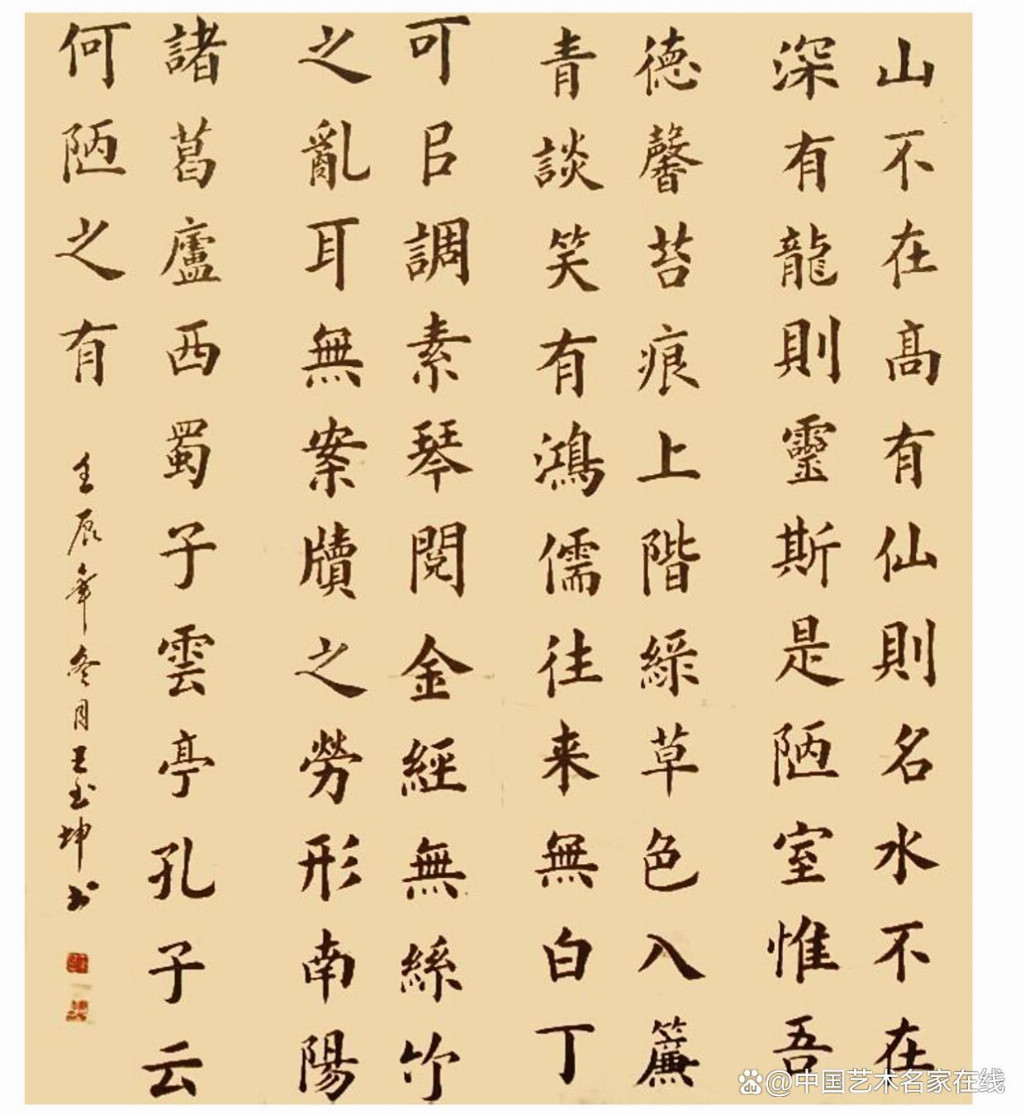 山不在高有仙則名水不在
深有龍則靈斯是陋室惟吾
德馨苔痕上階綠草色入簾
青談笑有鴻儒往来無白丁
可㠯調素琴閱金經無絲竹
之亂耳無案牘之勞形南陽
諸葛廬西蜀子雲亭孔子云
何陋之有
壬辰年冬月王玉坤书
@中国艺术名家在线